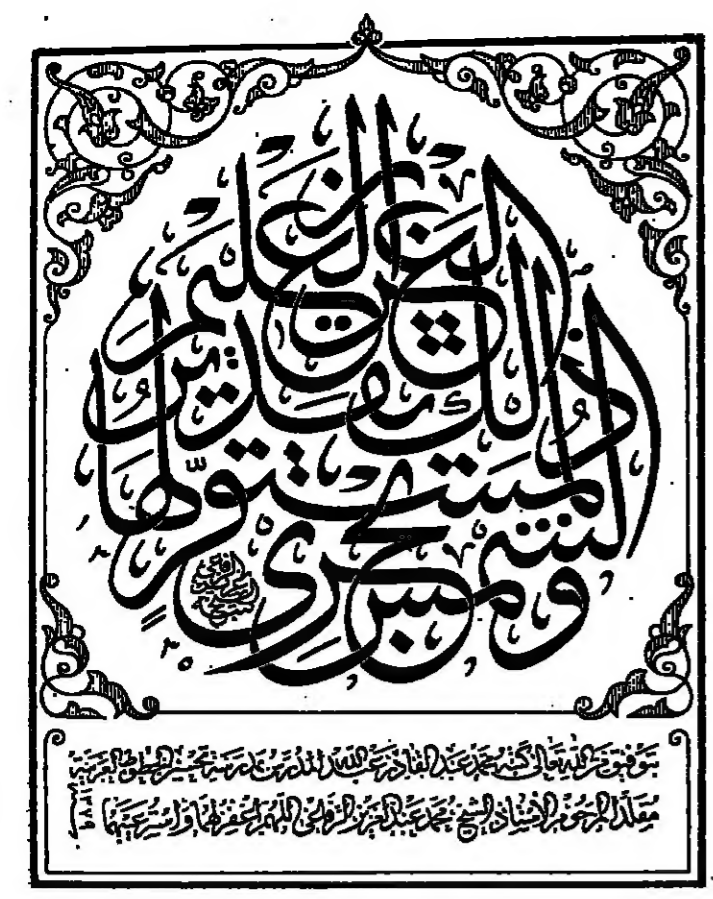 والشمس تجري لمستقر لها ذلك تقدير العزيز العليم
بتوفيق من الله تعالى كتبه محمد عبد القادر عبد الله المدرس بمدرسة تحسين الخطوط العربية
مقلدا المرحوم الأستاذ الشيخ محمد عبد العزيز الرفاعي اللهم اغفر لهما واستر عيبهما
١٣٧٩